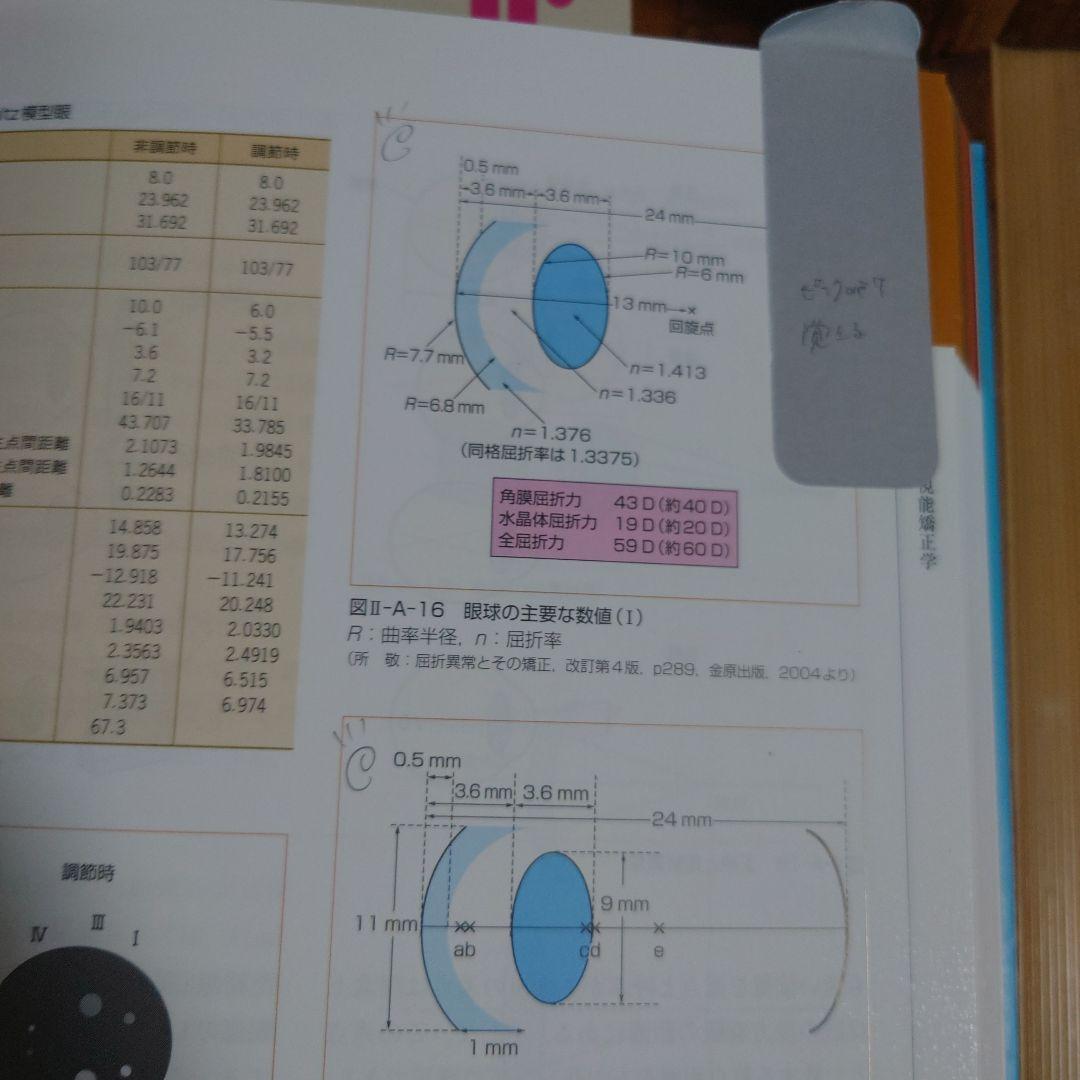 tz模型眼
非調節時 調節時
8.0 8.0
23.962 23.962
31.692 31.692
103/77 103/77
10.0 6.0
−6.1 −5.5
3.6 3.2
7.2 7.2
16/11 16/11
43.707 33.785
点間距離 2.1073 1.9845
点間距離 1.2644 1.8100
離 0.2283 0.2155
14.858 13.274
19.875 17.756
−12.918 −11.241
22.231 20.248
1.9403 2.0330
2.3563 2.4919
6.957 6.515
7.373 6.974
67.3
調節時
Ⅳ Ⅲ Ⅰ
C
0.5 mm
3.6 mm 3.6 mm
24 mm
R=10 mm
R=6 mm
13 mm ×
回旋点
R=7.7 mm
n=1.413
n=1.336
R=6.8 mm
n=1.376
(同格屈折率は1.3375)
角膜屈折力 43 D(約40 D)
水晶体屈折力 19 D(約20 D)
全屈折力 59 D(約60 D)
図Ⅱ-A-16 眼球の主要な数値(Ⅰ)
R:曲率半径, n:屈折率
(所 敬:屈折異常とその矯正, 改訂第4版, p289, 金原出版, 2004より)
C
0.5 mm
3.6 mm 3.6 mm
24 mm
9 mm
11 mm
ab cd e
1 mm
覚える
能矯正学